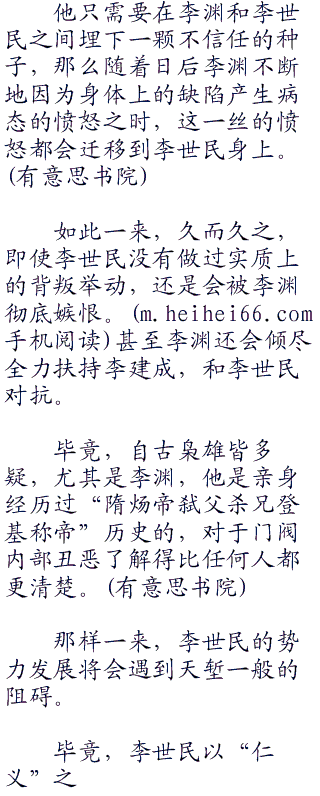 他只需要在李渊和李世
民之间埋下一颗不信任的种
子，那么随着日后李渊不断
地因为身体上的缺陷产生病
态的愤怒之时，这一丝的愤
怒都会迁移到李世民身上。
(有意思书院)
如此一来，久而久之，
即使李世民没有做过实质上
的背叛举动，还是会被李渊
彻底嫉恨。(m.heihei66.com
手机阅读)甚至李渊还会倾尽
全力扶持李建成，和李世民
对抗。
毕竟，自古枭雄皆多
疑，尤其是李渊，他是亲身
经历过“隋炀帝弑父杀兄登
基称帝”历史的，对于门阀
内部丑恶了解得比任何人都
更清楚。(有意思书院)
那样一来，李世民的势
力发展将会遇到天堑一般的
阻碍。
毕竟，李世民以“仁
义”之